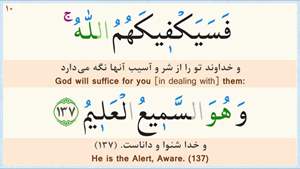 ۱۰
فَسَيَكْفِيكَهُمُ اللَّهُ ۚ
و خداوند تو را از شر و آسیب آنها نگه می‌دارد
God will suffice for you [in dealing with] them:
وَ هُوَ السَّمِيعُ الْعَلِيمُ ﴿۱۳۷﴾
و خدا شنوا و داناست. (۱۳۷)
He is the Alert, Aware. (137)